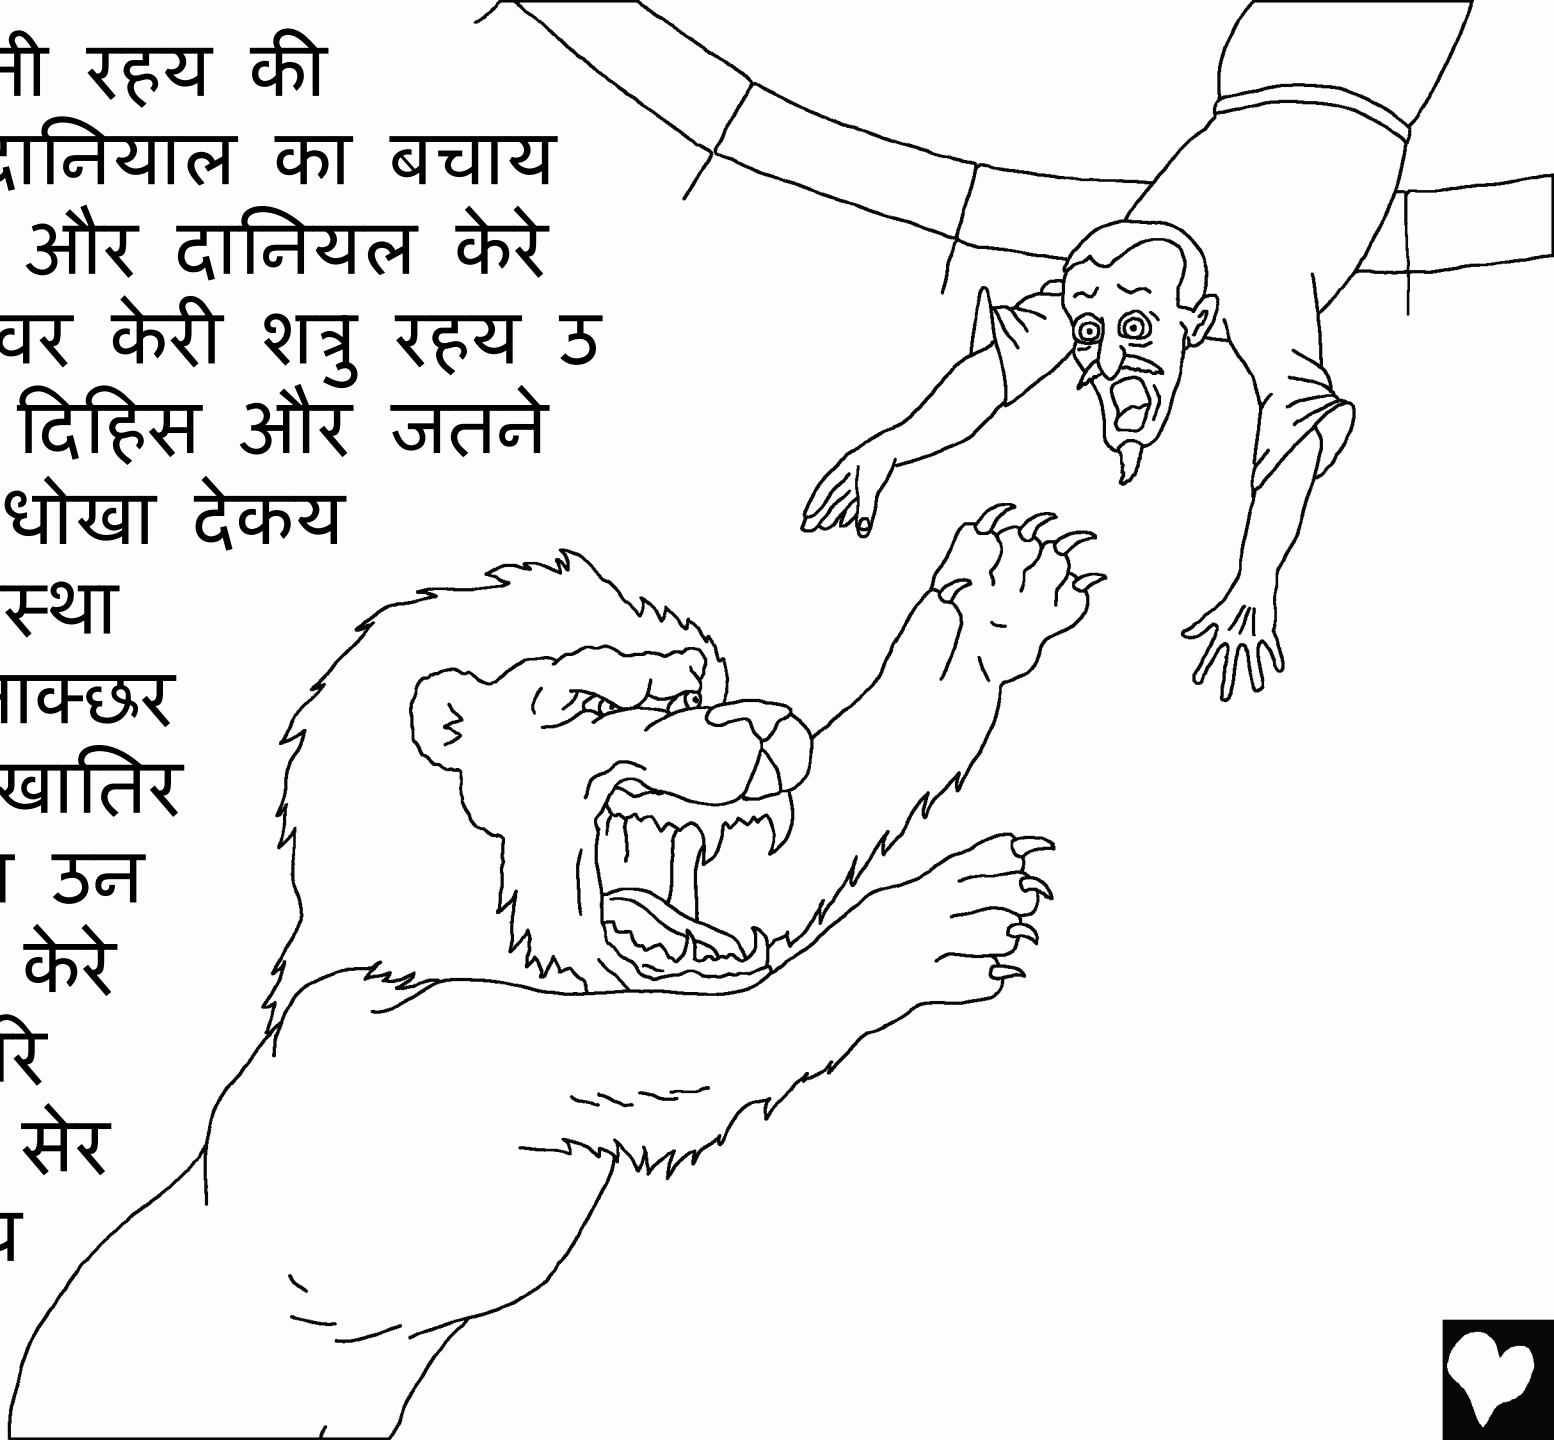 रहय की
दानियाल का बचाय
और दानियल केरे
केरी शत्रु रहय उ
दिहिस और जतने
धोखा देकय
खातिर
उन
केरे
सेर